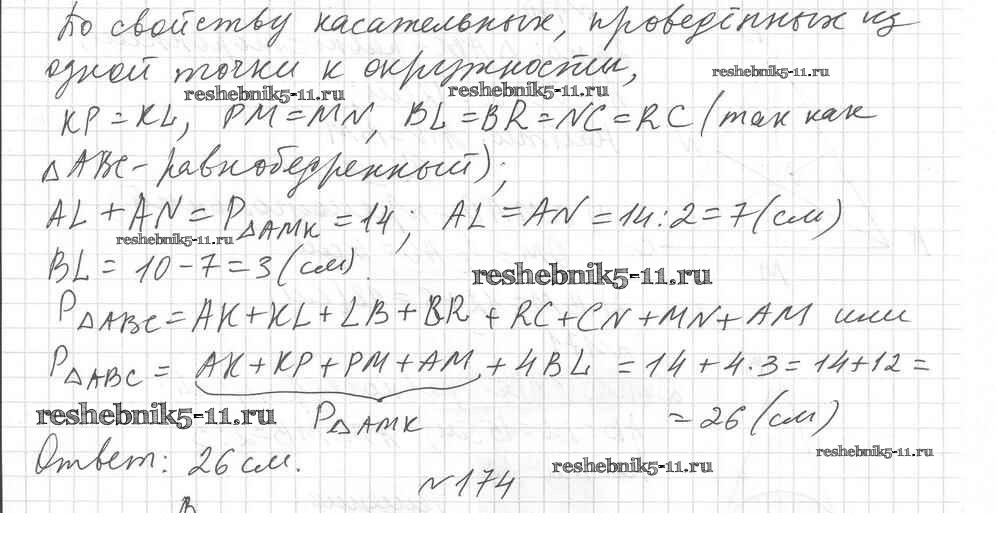 По свойству касательных, проведённых из
одной точки к окружности,
reshebnik5-11.ru
reshebnik5-11.ru
reshebnik5-11.ru
KP = KL, PM = MN, BL = BR = NC = RC (так как
△ABC - равнобедренный);
AL + AN = P△AMK = 14; AL = AN = 14 : 2 = 7 (см)
reshebnik5-11.ru
BL = 10 - 7 = 3 (см).
reshebnik5-11.ru
P△ABC = AK + KL + LB + BR + RC + CN + MN + AM или
P△ABC = AK + KP + PM + AM + 4BL = 14 + 4·3 = 14 + 12 =
reshebnik5-11.ru
P△AMK
= 26 (см)
reshebnik5-11.ru
Ответ: 26 см.
reshebnik5-11.ru
№174
B